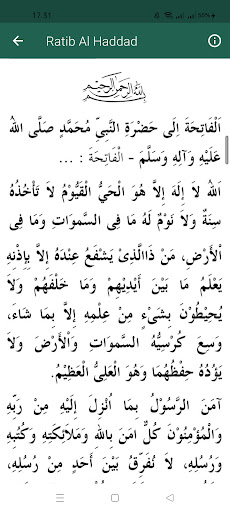 17.31
55%
Ratib Al Haddad
بِسْمِ اللهِ الرَّحْمٰنِ الرَّحِيْمِ
اَلْفَاتِحَةَ اِلَى حَضْرَةِ النَّبِيِّ مُحَمَّدٍ صَلَّى اللهُ
عَلَيْهِ وَآلِهِ وَسَلَّمَ - الْفَاتِحَةَ : ...
اَللهُ لاَ إِلَهَ إِلاَّ هُوَ الْحَيُّ الْقَيُّوْمُ لاَ تَأْخُذُهُ
سِنَةٌ وَلاَ نَوْمٌ لَهُ مَا فِى السَّمَوَاتِ وَمَا فِى
اْلأَرْضِ، مَنْ ذَاالَّذِىْ يَشْفَعُ عِنْدَهُ إِلاَّ بِإِذْنِهِ
يَعْلَمُ مَا بَيْنَ أَيْدِيْهِمْ وَمَا خَلْفَهُمْ وَلاَ
يُحِيْطُوْنَ بِشَىْءٍ مِنْ عِلْمِهِ إِلاَّ بِمَا شَاءَ،
وَسِعَ كُرْسِيُّهُ السَّمَوَاتِ وَاْلأَرْضَ وَلاَ
يَؤُدُهُ حِفْظُهُمَا وَهُوَ الْعَلِىُّ الْعَظِيْمُ.
آمَنَ الرَّسُوْلُ بِمَا اُنْزِلَ إِلَيْهِ مِنْ رَبِّهِ
وَالْمُؤْمِنُوْنَ كُلٌّ آمَنَ بِاللهِ وَمَلاَئِكَتِهِ وَكُتُبِهِ
وَرُسُلِهِ، لاَ نُفَرِّقُ بَيْنَ أَحَدٍ مِنْ رُسُلِهِ،